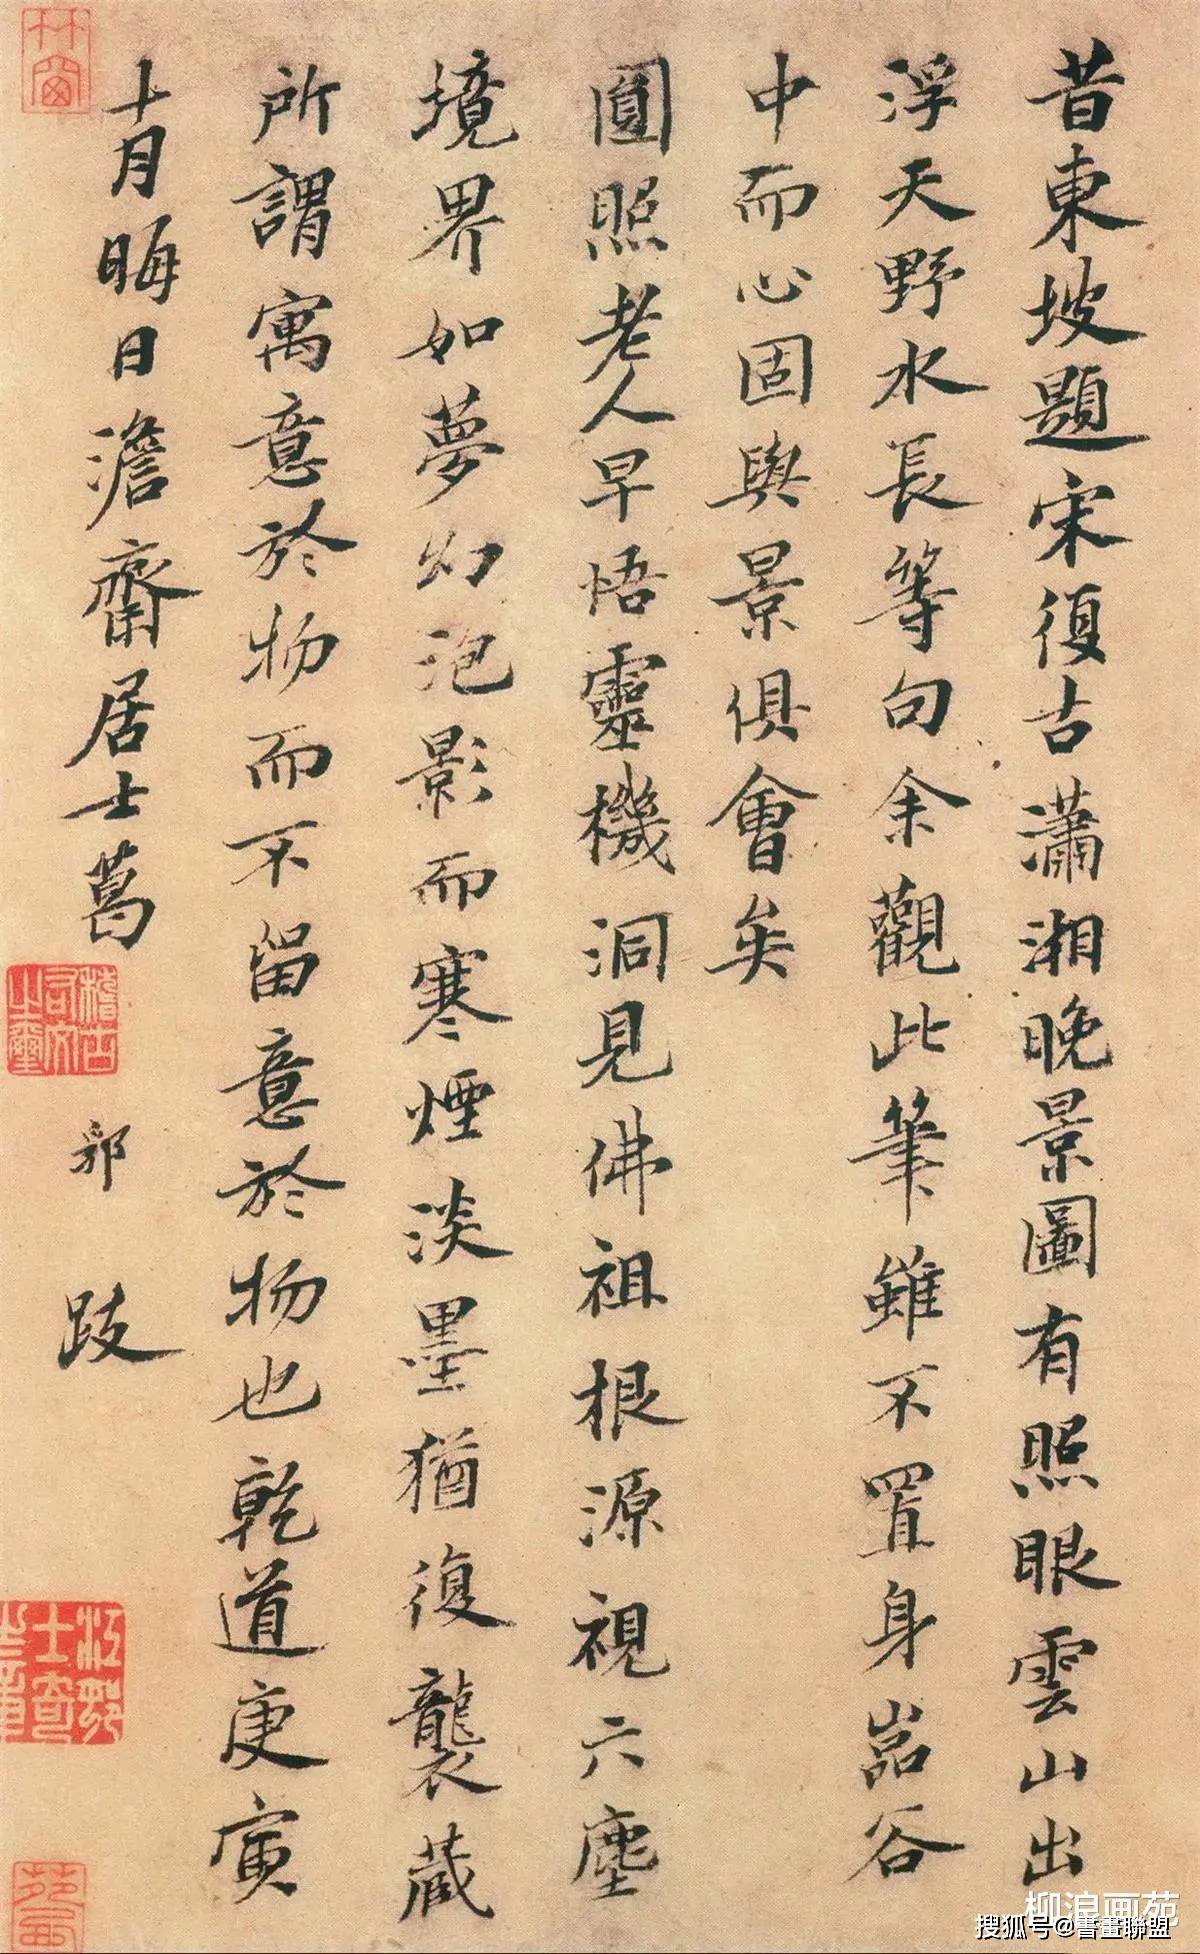 昔東坡題宋復古瀟湘晚景圖有照眼雲山出
浮天野水長等句余觀此筆雖不置身嵓谷
中而心固與景俱會矣
圓照老人早悟靈機洞見佛祖根源視六塵
境界如夢幻泡影而寒煙淡墨猶復襲藏
所謂寓意於物而不留意於物也乾道庚寅
十月晦日澹齋居士葛
郛
跋
柳浪画苑
搜狐号@書畫聯盟